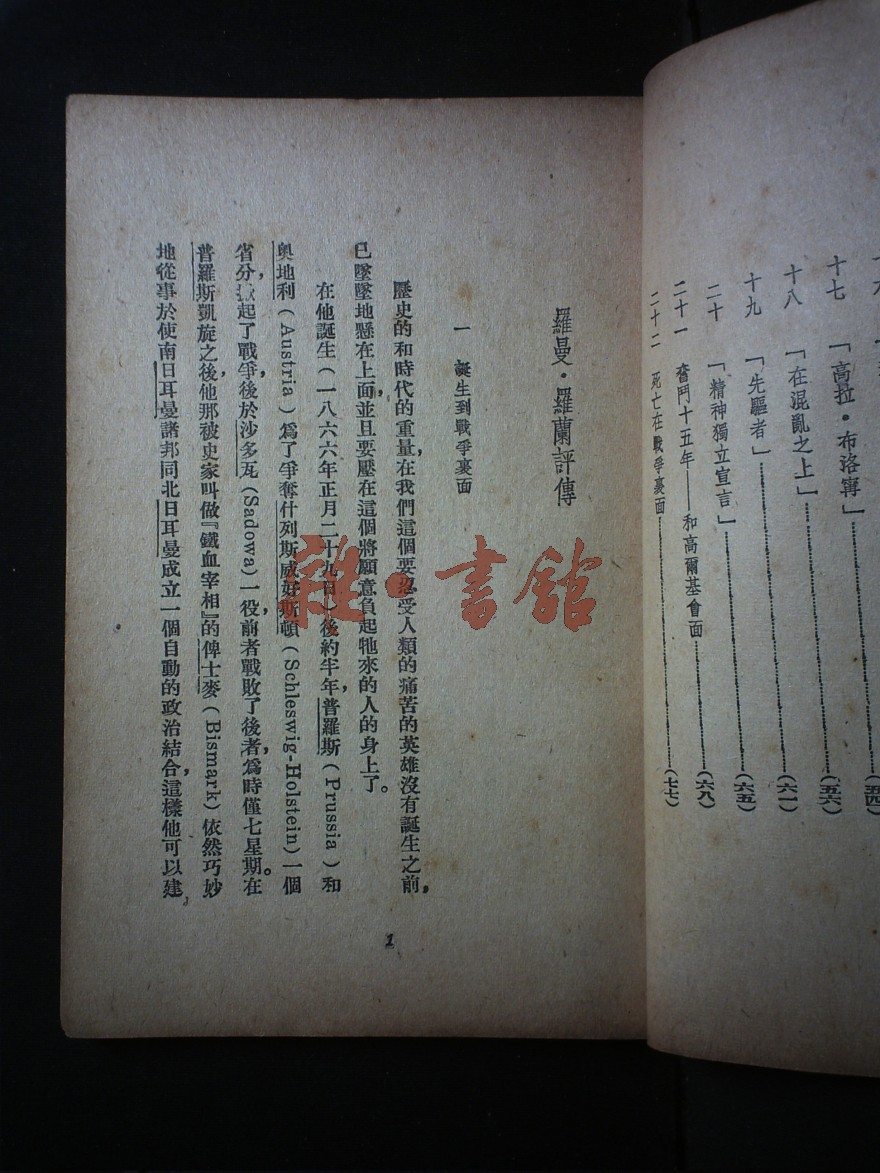 十七 「高拉·布洛寗」 (五六)
十八 「在混亂之上」 (六一)
十九 「先驅者」 (六五)
二十 「精神獨立宣言」 (六八)
二十一 奮鬥十五年——和高爾基會面
二十二 死亡在戰爭裏面 (七七)
羅曼·羅蘭評傳
一 誕生到戰爭裏面
歷史的和時代的重量，在我們這個要忍受人類的痛苦的英雄沒有誕生之前，
已墜墜地懸在上面，並且要壓在這個將願意負起牠來的人的身上了。
在他誕生（一八六六年正月二十九日）後約半年，普羅斯（Prussia）和
奧地利（Austria）爲了爭奪什列斯威好斯頓（Schleswig-Holstein）一個
省分，起了戰爭，後於沙多瓦（Sadowa）一役，前者戰敗了後者，爲時僅七星期。在
普羅斯凱旋之後，他那被史家叫做『鐵血宰相』的俾士麥（Bismark）依然巧妙
地從事於使南日耳曼諸邦同北日耳曼成立一個自動的政治結合，這樣他可以建
1
雜·書館